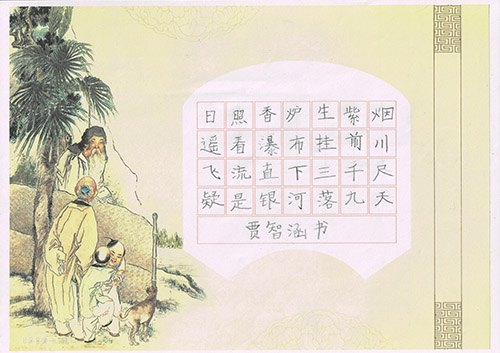 日照香炉生紫烟
遥看瀑布挂前川
飞流直下三千尺
疑是银河落九天
贾智涵书